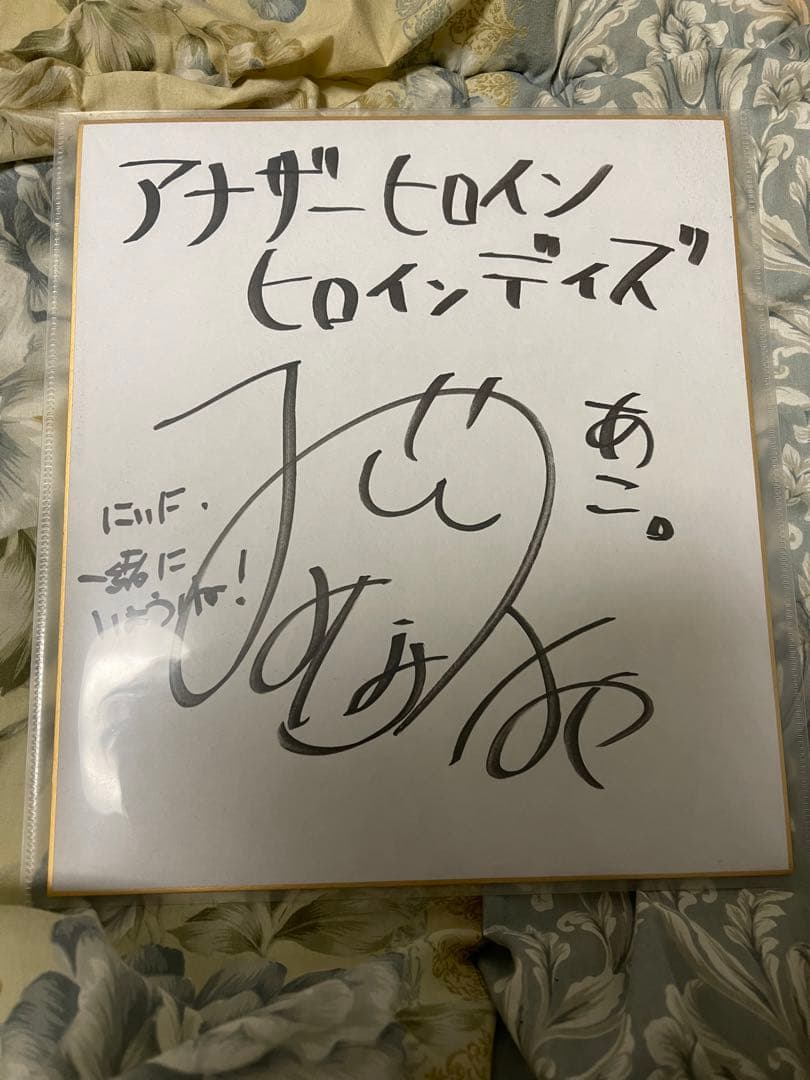 アナザーヒロイン
ヒロインデイズ
あこ。
にいに、
一緒に
しようね!